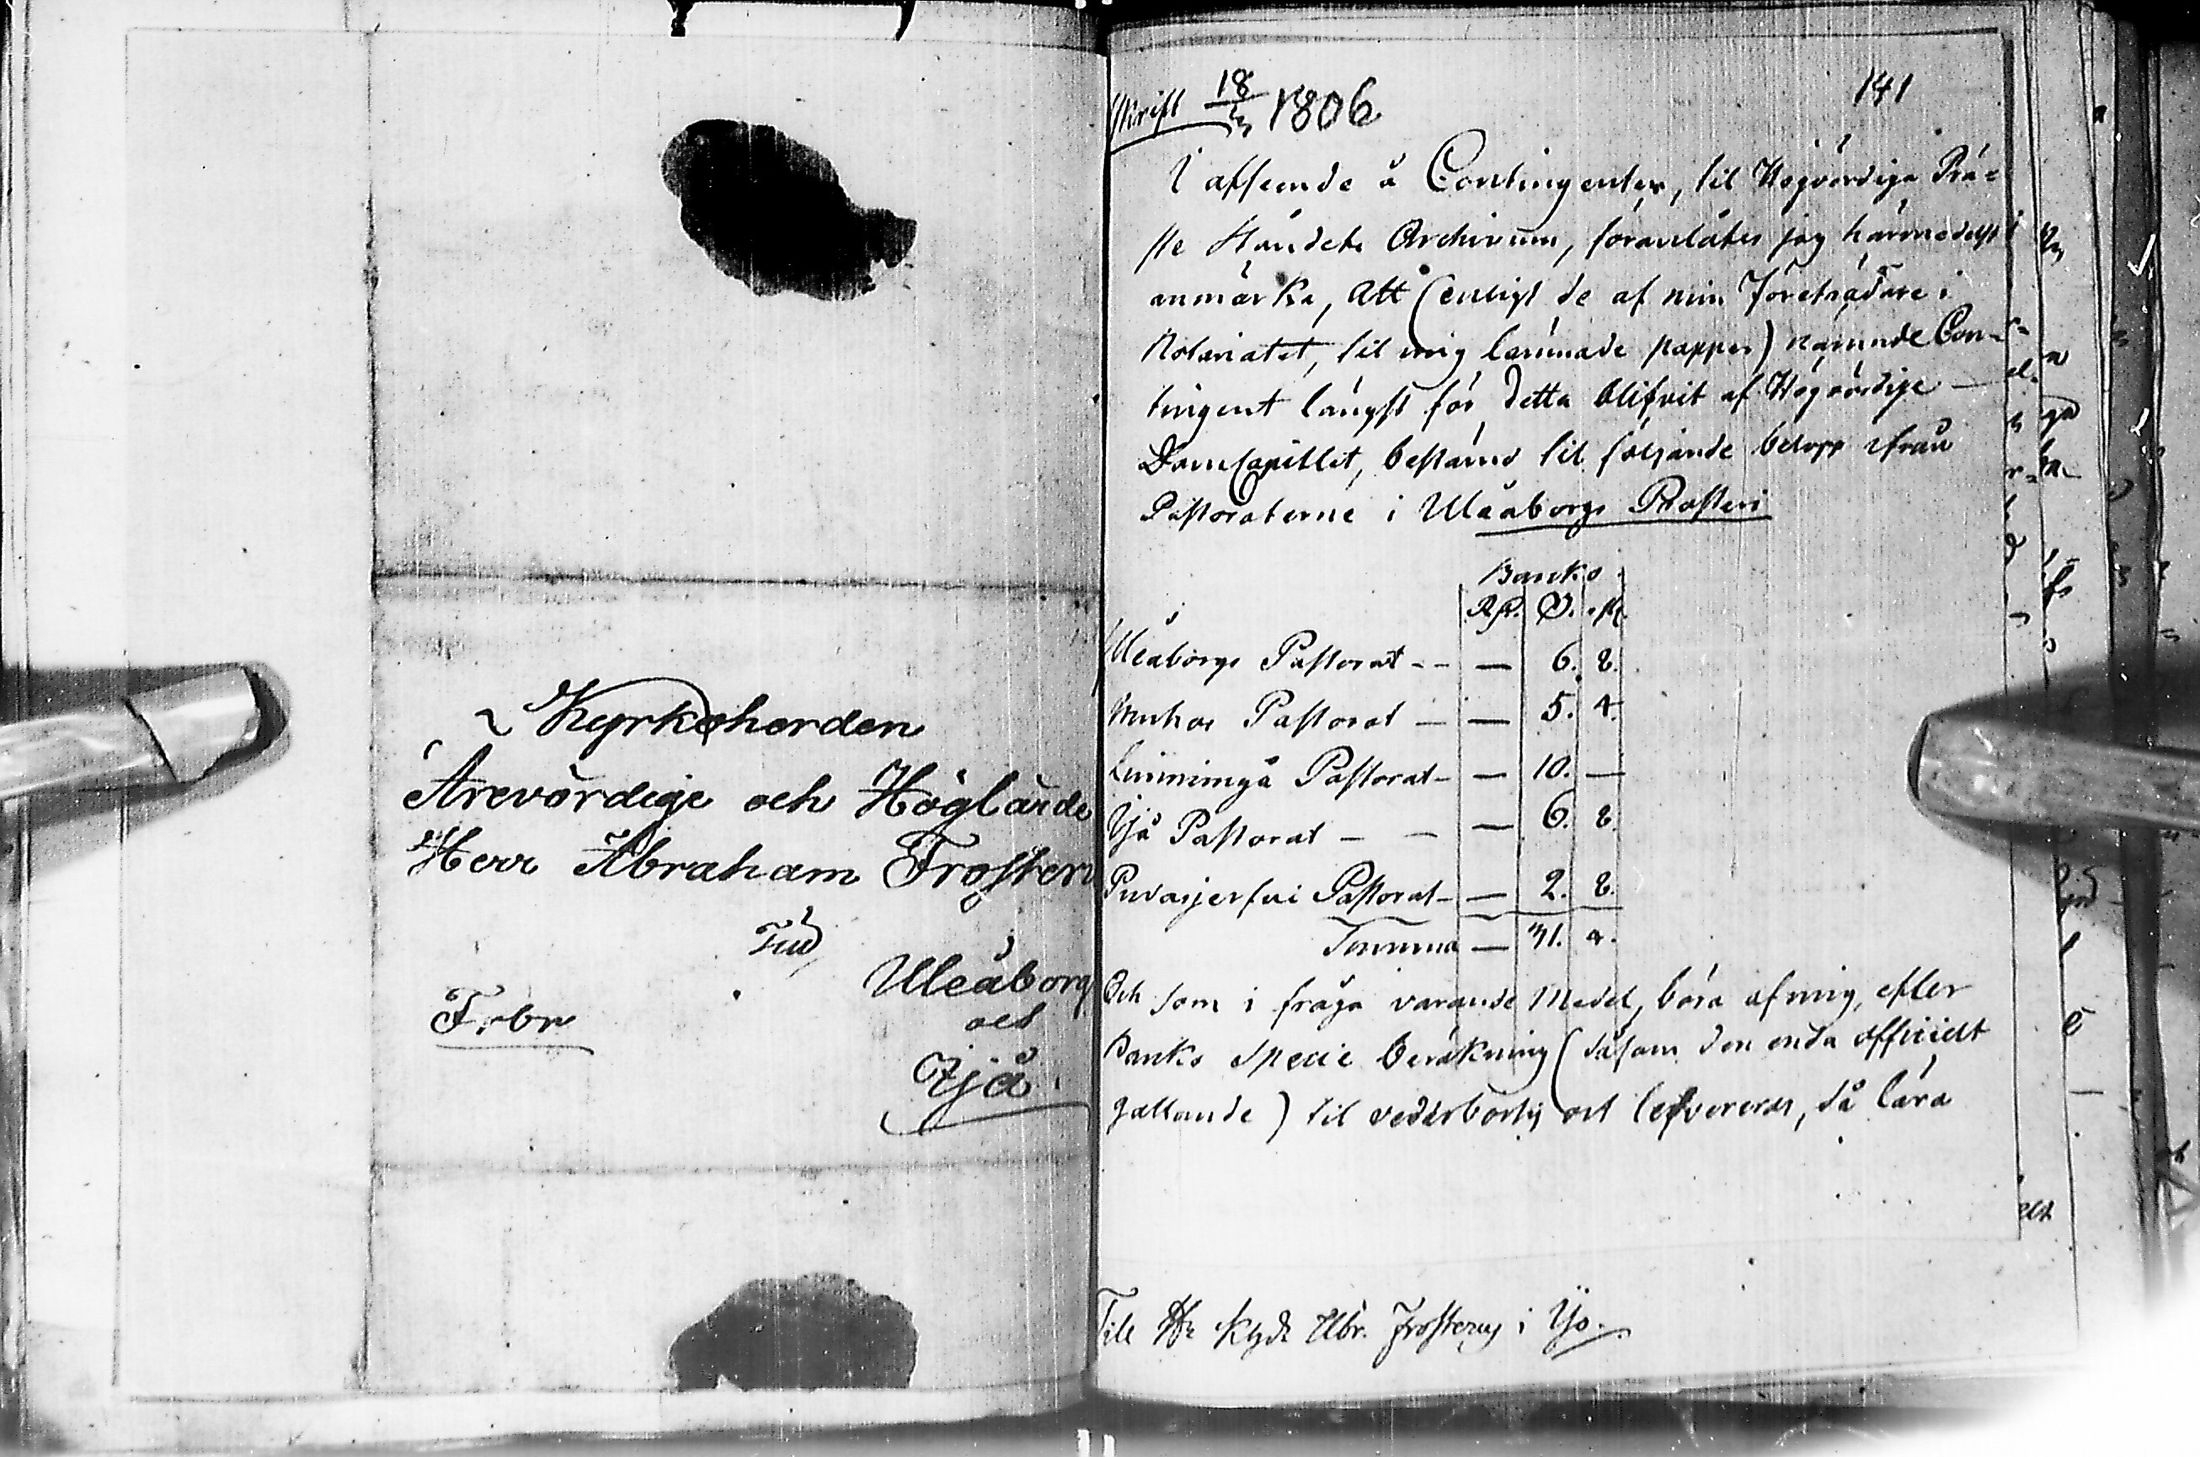 Kyrkoherden
Ärevördige och Höglärde
Herr Abraham Frosteru
Frbr
Uleåborg
och
Ijå
141
18/3 1806
I afseende å Contingenten, til Högvördige Prä=
ste Ståndets Archivum, föranlåtes jag härmedelst
anmärka, Att (enligt de af min Företrädare i
Notariatet, til mig lämnade papper) nämnde Con=
tingent längst för detta blifvit af Högvördige
DomCapitlet, bestämd til följande belopp ifrån
Pastoraterne i Uleåborgs Prosteri
Banko
R:dr. S. r:st.
Uleåborgs Pastorat - - — 6. 8.
Muhos Pastorat — — 5. 4.
Limmingå Pastorat - — 10. —
Ijå Pastorat — — — 6. 8.
Pudasjerfvi Pastorat - — 2. 8.
Summa — 31. 4.
Och som i fråga varande Medel, böra af mig, efter
Banko Specie beräkning (såsom den enda officielt
gällande) til vederbörlig ort lefvereras, så lära
Till Hr Khde Abr. Frosterus i Ijo.